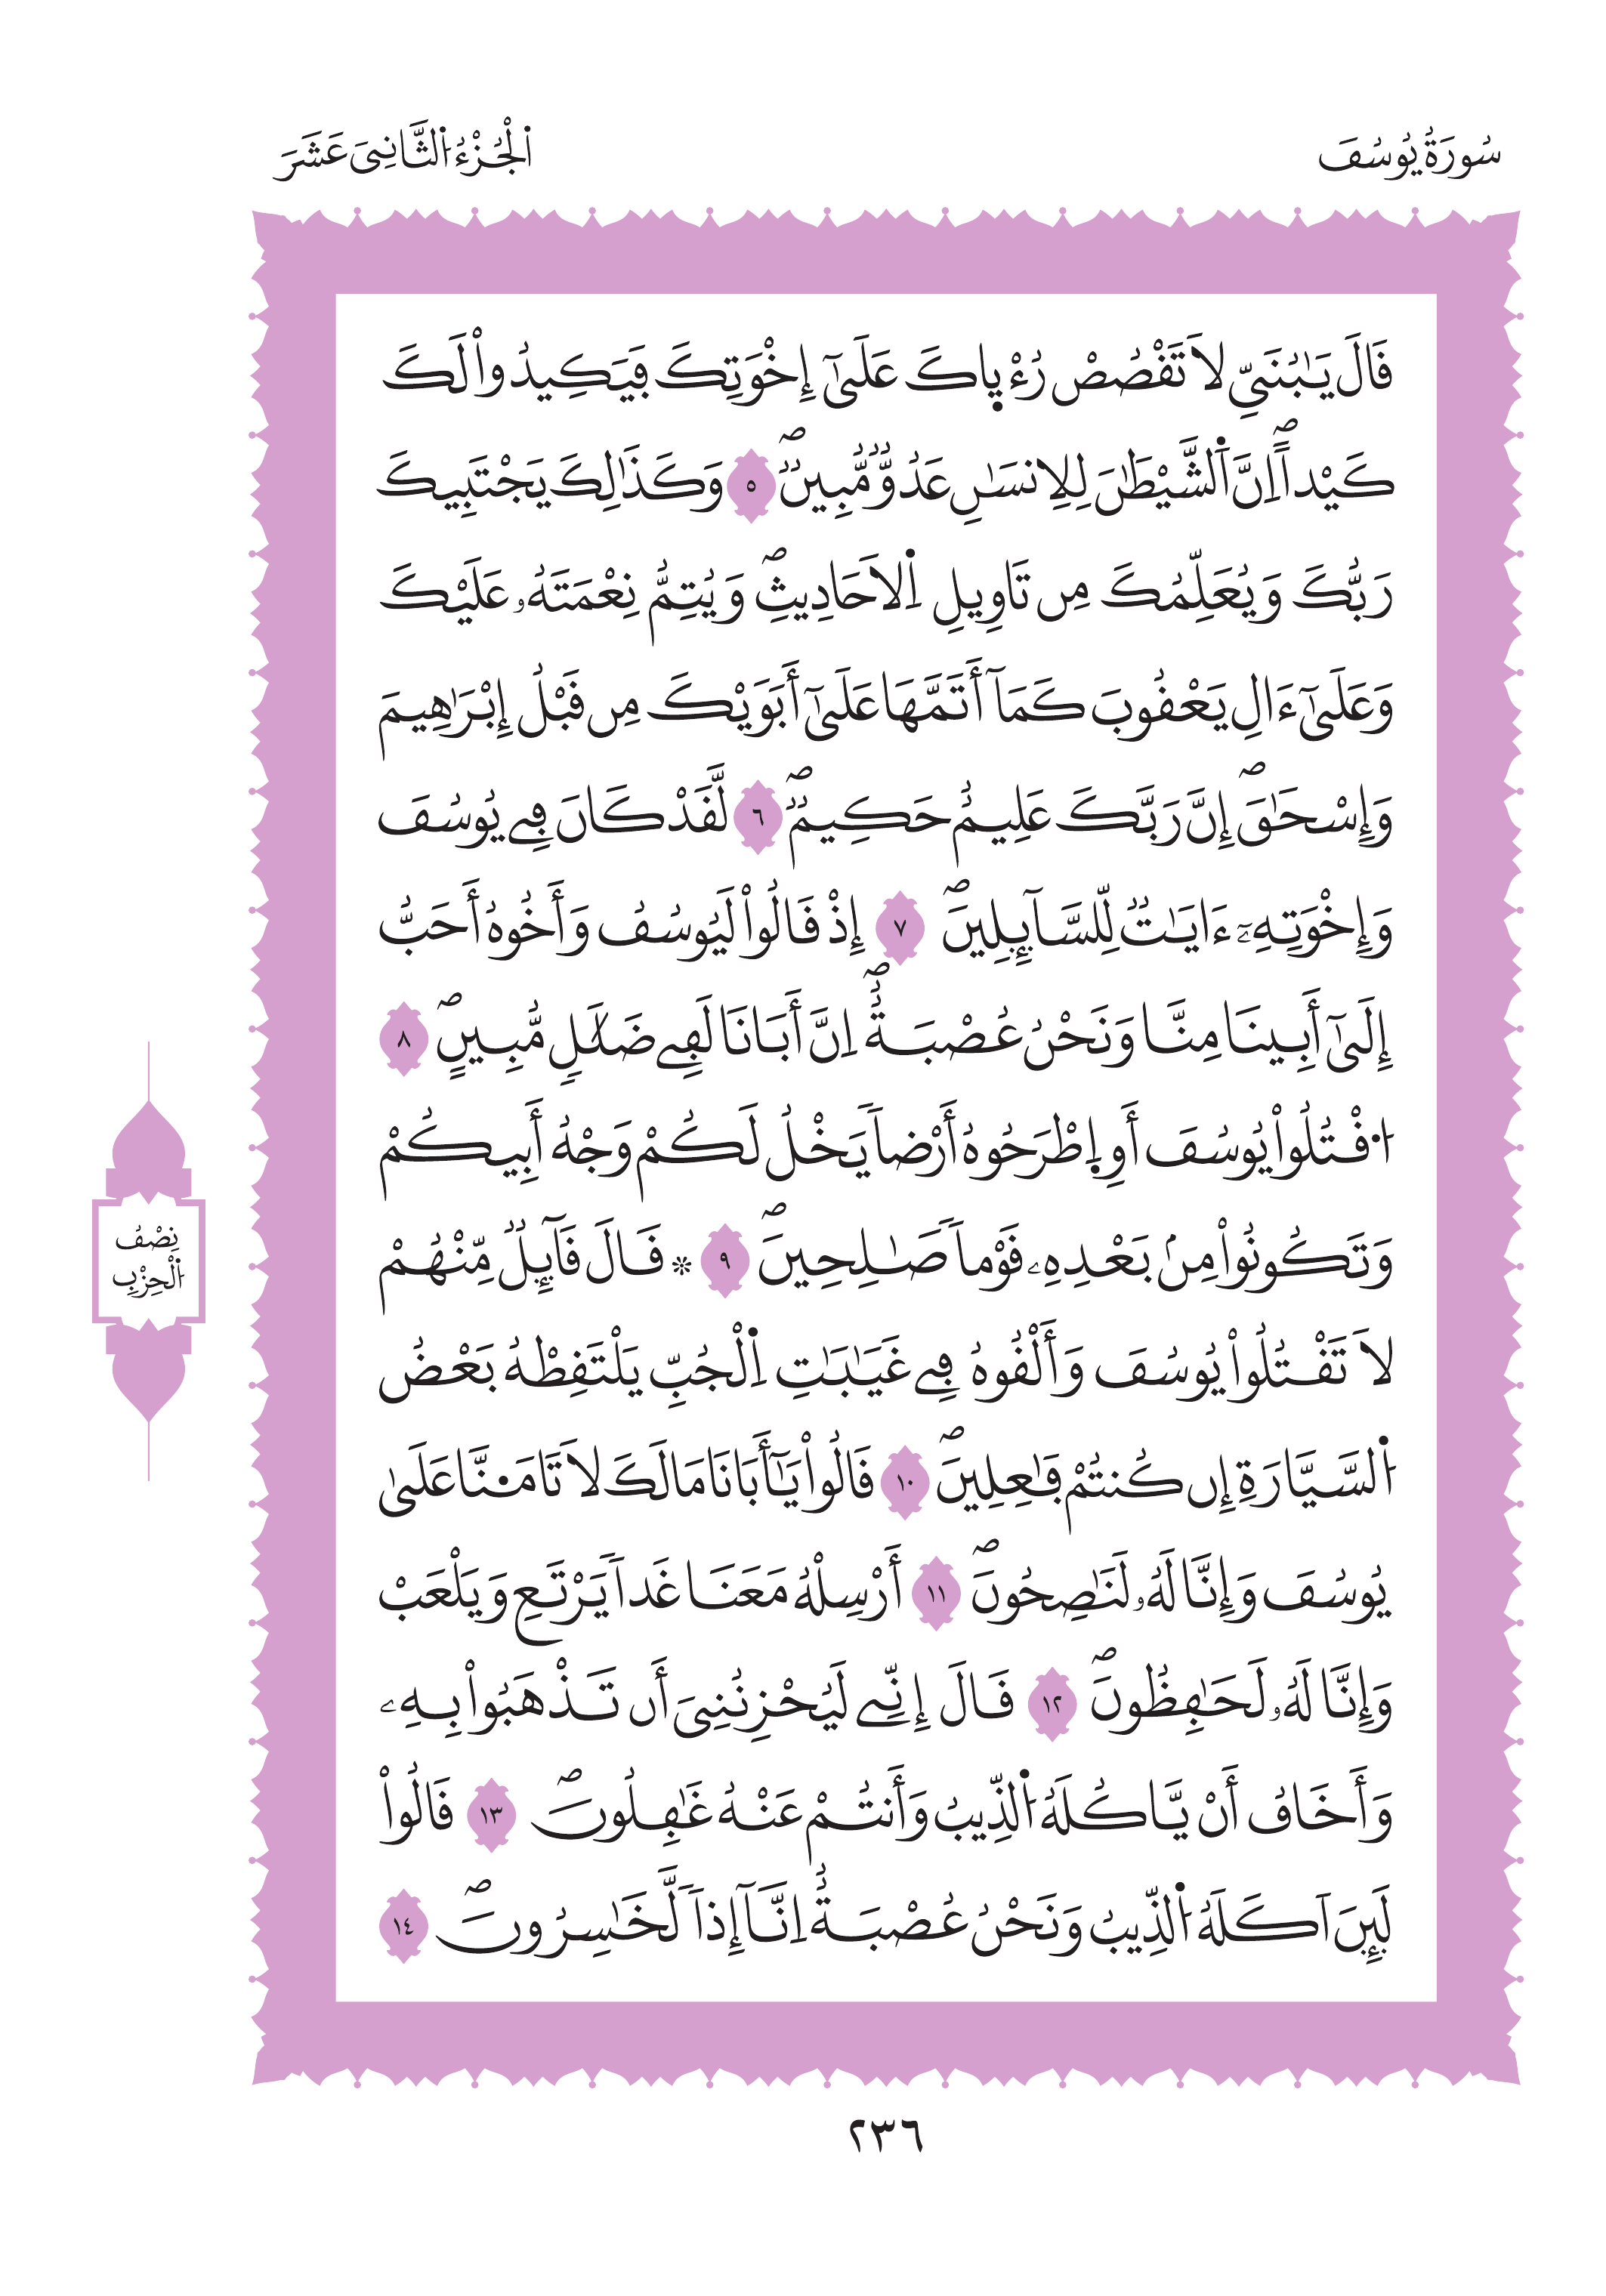 سُورَةُ يُوسُفَ
اَ۬لْجُزْءُ اُ۬لثَّانِيَ عَشَرَ
قَالَ يَٰبُنَيِّ لَا تَقْصُصْ رُءْي۪اكَ عَلَىٰٓ إِخْوَتِكَ فَيَكِيدُواْ لَكَ
كَيْداًۖ اِنَّ اَ۬لشَّيْطَٰنَ لِلِانسَٰنِ عَدُوّٞ مُّبِينٞۖ ٥ وَكَذَٰلِكَ يَجْتَبِيكَ
رَبُّكَ وَيُعَلِّمُكَ مِن تَاوِيلِ اِ۬لَاحَادِيثِۖ وَيُتِمُّ نِعْمَتَهُۥ عَلَيْكَ
وَعَلَىٰٓ ءَالِ يَعْقُوبَ كَمَآ أَتَمَّهَا عَلَىٰٓ أَبَوَيْكَ مِن قَبْلُ إِبْرَٰهِيمَ
وَإِسْحَٰقَۖ إِنَّ رَبَّكَ عَلِيمٌ حَكِيمٞۖ ٦ لَّقَدْ كَانَ فِے يُوسُفَ
وَإِخْوَتِهِۦٓ ءَايَٰتٞ لِّلسَّآئِلِينَۖ ٧ إِذْ قَالُواْ لَيُوسُفُ وَأَخُوهُ أَحَبُّ
إِلَىٰٓ أَبِينَا مِنَّا وَنَحْنُ عُصْبَةٌۖ اِنَّ أَبَانَا لَفِے ضَلَٰلٖ مُّبِينٍۖ ٨
اُ۟قْتُلُواْ يُوسُفَ أَوِ اِ۪طْرَحُوهُ أَرْضاٗ يَخْلُ لَكُمْ وَجْهُ أَبِيكُمْ
وَتَكُونُواْ مِنۢ بَعْدِهِۦ قَوْماٗ صَٰلِحِينَۖ ٩ ۞ قَالَ قَآئِلٞ مِّنْهُمْ
لَا تَقْتُلُواْ يُوسُفَ وَأَلْقُوهُ فِے غَيَٰبَٰتِ اِ۬لْجُبِّ يَلْتَقِطْهُ بَعْضُ
اُ۬لسَّيَّارَةِ إِن كُنتُمْ فَٰعِلِينَۖ ١٠ قَالُواْ يَٰٓأَبَانَا مَالَكَ لَا تَامَ۬نَّا عَلَىٰ
يُوسُفَ وَإِنَّا لَهُۥ لَنَٰصِحُونَۖ ١١ أَرْسِلْهُ مَعَنَا غَداٗ يَرْتَعِ وَيَلْعَبْ
وَإِنَّا لَهُۥ لَحَٰفِظُونَۖ ١٢ قَالَ إِنِّے لَيُحْزِنُنِيَ أَن تَذْهَبُواْ بِهِۦ
وَأَخَافُ أَنْ يَّاكُلَهُ اُ۬لذِّيبُ وَأَنتُمْ عَنْهُ غَٰفِلُونَۖ ١٣ قَالُواْ
لَئِنَ اَكَلَهُ اُ۬لذِّيبُ وَنَحْنُ عُصْبَةٌ اِنَّآ إِذاٗ لَّخَٰسِرُونَۖ ١٤
نِصْفُ
اُ۬لْحِزْبِ
٢٣٦